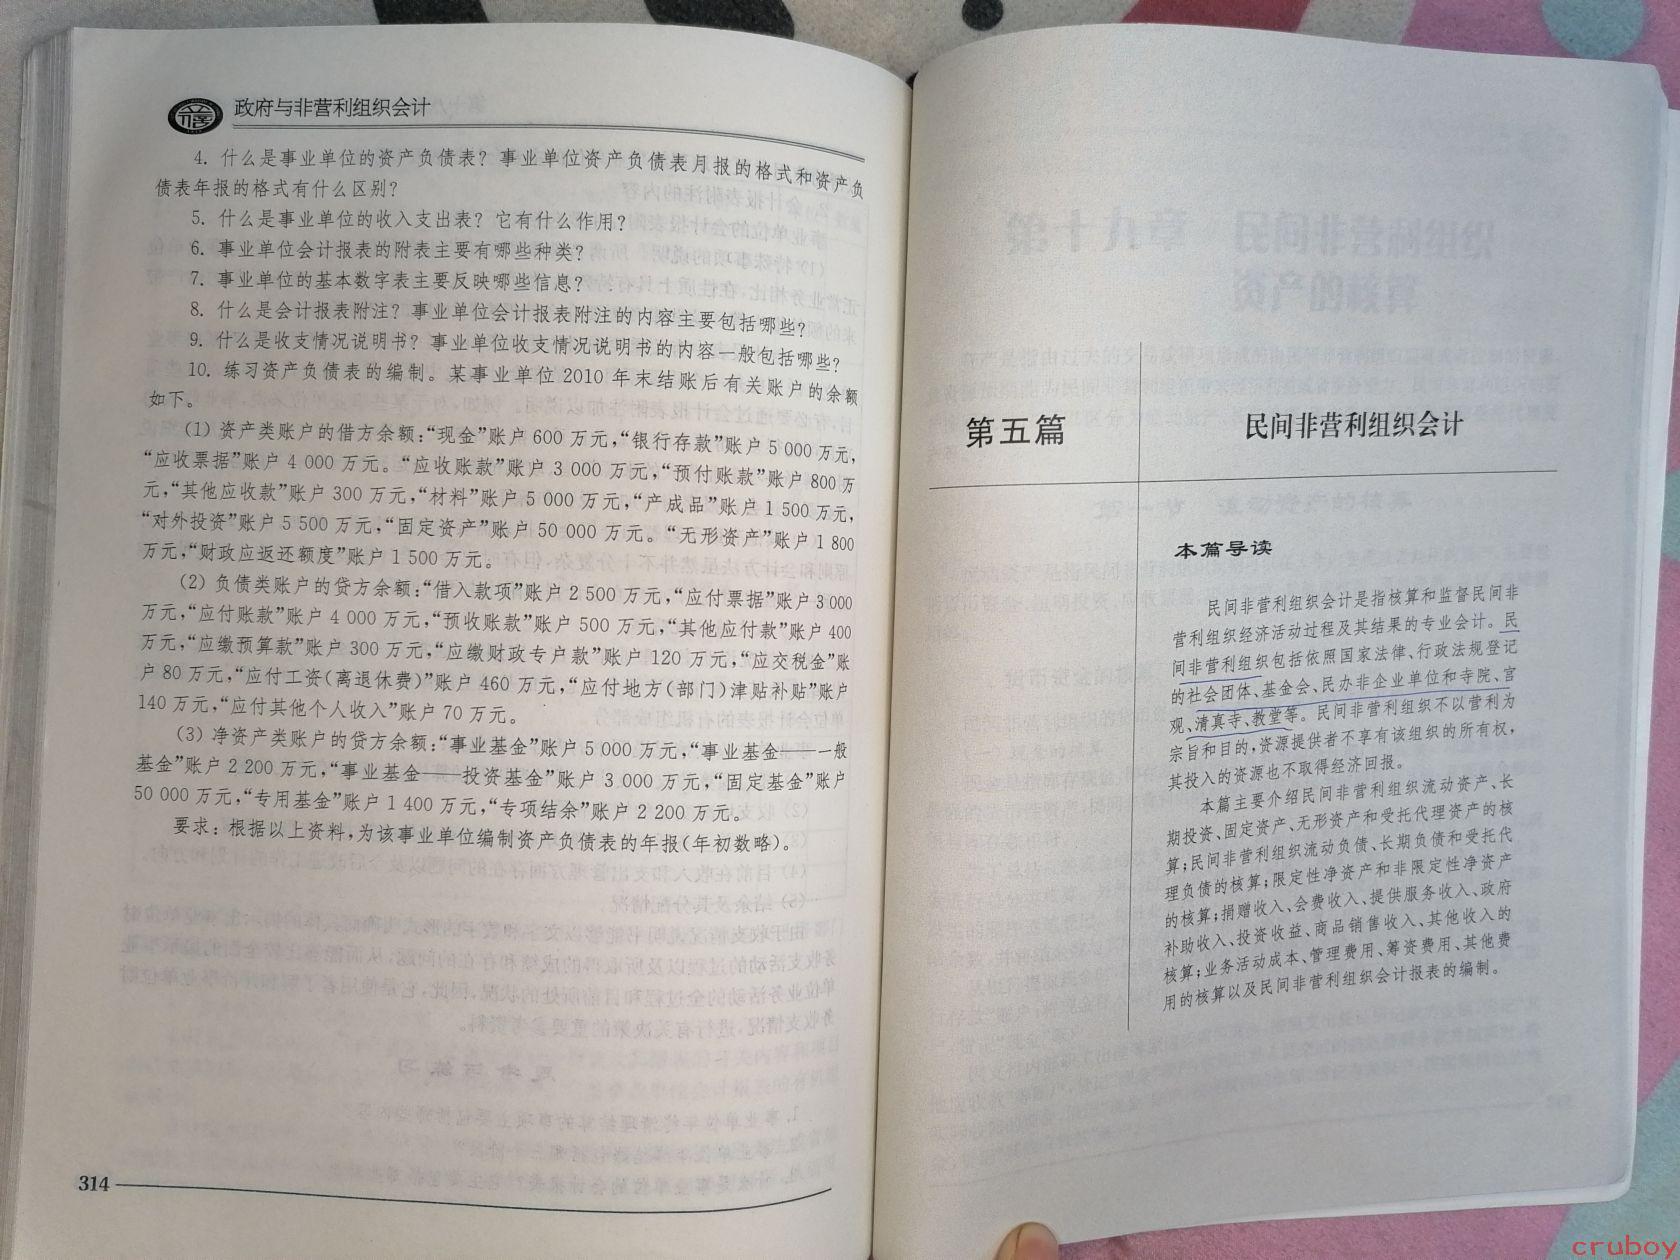 政府与非营利组织会计
4. 什么是事业单位的资产负债表？事业单位资产负债表月报的格式和资产负
债表年报的格式有什么区别？
5. 什么是事业单位的收入支出表？它有什么作用？
6. 事业单位会计报表的附表主要有哪些种类？
7. 事业单位的基本数字表主要反映哪些信息？
8. 什么是会计报表附注？事业单位会计报表附注的内容主要包括哪些？
9. 什么是收支情况说明书？事业单位收支情况说明书的内容一般包括哪些？
10. 练习资产负债表的编制。某事业单位 2010 年末结账后有关账户的余额
如下。
(1) 资产类账户的借方余额：“现金”账户 600 万元，“银行存款”账户 5 000 万元，
“应收票据”账户 4 000 万元。“应收账款”账户 3 000 万元，“预付账款”账户 800 万
元，“其他应收款”账户 300 万元，“材料”账户 5 000 万元，“产成品”账户 1 500 万元，
“对外投资”账户 5 500 万元，“固定资产”账户 50 000 万元。“无形资产”账户 1 800
万元，“财政应返还额度”账户 1 500 万元。
(2) 负债类账户的贷方余额：“借入款项”账户 2 500 万元，“应付票据”账户 3 000
万元，“应付账款”账户 4 000 万元，“预收账款”账户 500 万元，“其他应付款”账户 400
万元，“应缴预算款”账户 300 万元，“应缴财政专户款”账户 120 万元，“应交税金”账
户 80 万元，“应付工资(离退休费)”账户 460 万元，“应付地方(部门)津贴补贴”账户
140 万元，“应付其他个人收入”账户 70 万元。
(3) 净资产类账户的贷方余额：“事业基金”账户 5 000 万元，“事业基金——一般
基金”账户 2 200 万元，“事业基金——投资基金”账户 3 000 万元，“固定基金”账户
50 000 万元，“专用基金”账户 1 400 万元，“专项结余”账户 2 200 万元。
要求：根据以上资料，为该事业单位编制资产负债表的年报(年初数略)。
314
第五篇
民间非营利组织会计
本篇导读
民间非营利组织会计是指核算和监督民间非
营利组织经济活动过程及其结果的专业会计。民
间非营利组织包括依照国家法律、行政法规登记
的社会团体、基金会、民办非企业单位和寺院、宫
观、清真寺、教堂等。民间非营利组织不以营利为
宗旨和目的，资源提供者不享有该组织的所有权，
其投入的资源也不取得经济回报。
本篇主要介绍民间非营利组织流动资产、长
期投资、固定资产、无形资产和受托代理资产的核
算；民间非营利组织流动负债、长期负债和受托代
理负债的核算；限定性净资产和非限定性净资产
的核算；捐赠收入、会费收入、提供服务收入、政府
补助收入、投资收益、商品销售收入、其他收入的
核算；业务活动成本、管理费用、筹资费用、其他费
用的核算以及民间非营利组织会计报表的编制。
cruboy